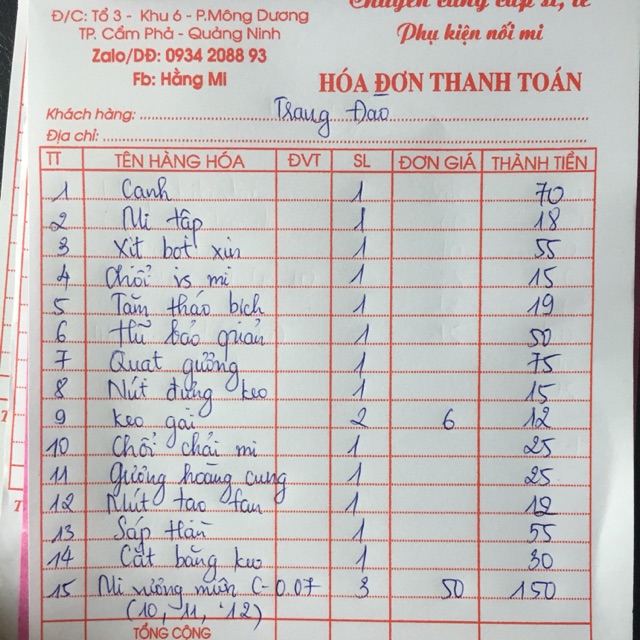 Chuyên cung cấp sỉ, lẻ
Đ/C: Tổ 3 - Khu 6 - P.Mông Dương
TP. Cẩm Phả - Quảng Ninh
Phụ kiện nối mi
Zalo/DĐ: 0934 2088 93
Fb: Hằng Mi
HÓA ĐƠN THANH TOÁN
Khách hàng: Trang Đào
Địa chỉ:
TT TÊN HÀNG HÓA ĐVT SL ĐƠN GIÁ THÀNH TIỀN
1 Canh 1 70
2 Mi tập 1 18
3 Xịt bọt xịn 1 55
4 Chổi vs mi 1 15
5 Tăm tháo bích 1 19
6 Hũ bảo quản 1 50
7 Quạt gương 1 75
8 Nút đựng keo 1 15
9 Keo gai 2 6 12
10 Chổi chải mi 1 25
11 Gương hoàng cung 1 25
12 Mút tạo fan 1 12
13 Sáp Hàn 1 55
14 Cắt băng keo 1 30
15 Mi vuông mun C-0.07 3 50 150
(10, 11, 12)
TỔNG CỘNG